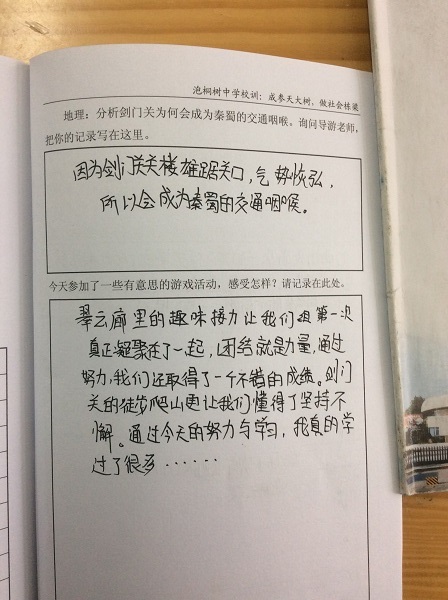 泡桐树中学校训：成参天大树，做社会栋梁
地理：分析剑门关为何会成为秦蜀的交通咽喉。询问导游老师，
把你的记录写在这里。
因为剑门关关楼雄踞关口，气势恢弘，
所以会成为秦蜀的交通咽喉。
今天参加了一些有意思的游戏活动，感受怎样？请记录在此处。
翠云廊里的趣味接力让我们组第一次
真正凝聚在了一起，团结就是力量，通过
努力，我们还取得了一个不错的成绩。剑门
关的徒步爬山更让我们懂得了坚持不
懈。通过今天的努力与学习，我真的学
过了很多……